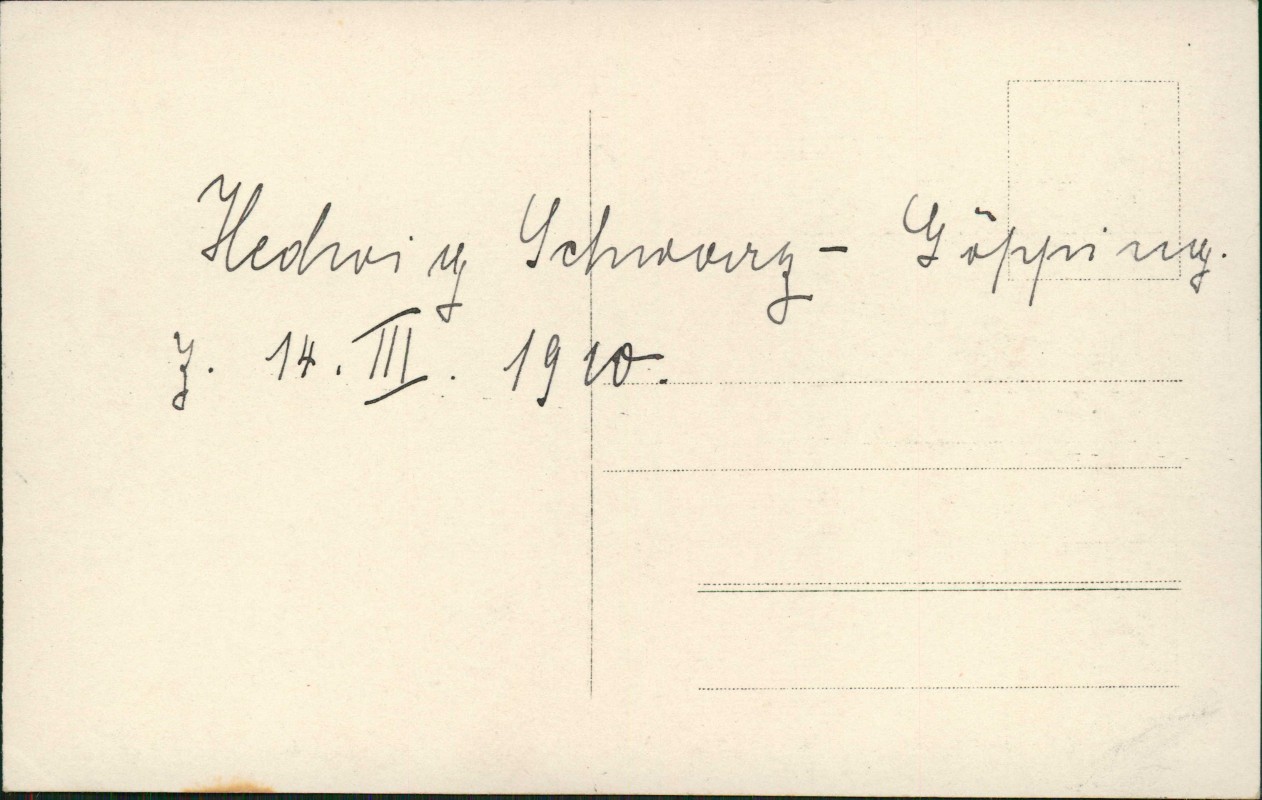 Hedwig Schwarz - Göpping.
z. 14. III. 1910.